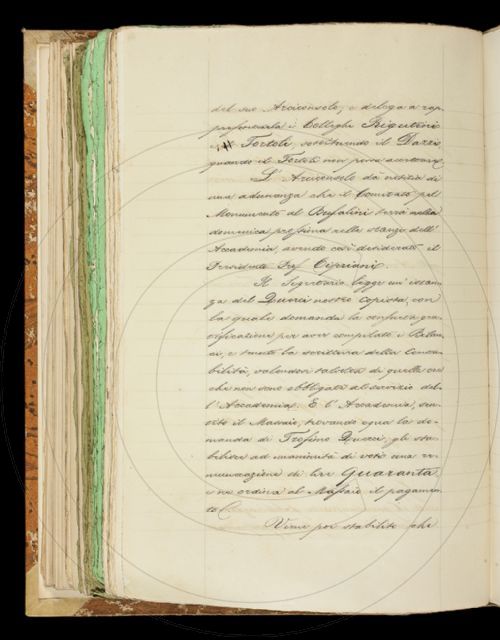 del suo Arciconsolo, e delega a rap-
presentarla i Colleghi Rigutini
e Tortoli, sostituendo il Dazzi
quando il Tortoli non possa accettare.
L'Arciconsolo dà notizia di
una adunanza che il Comitato pel
Monumento al Bufalini terrà nella
domenica prossima nelle stanze dell'
Accademia, avendo così desiderato il
Presidente Prof. Cipriani.
Il Segretario legge un'istan-
za del Querci nostro copista, con
la quale domanda la consueta gra-
tificazione per aver compilato i Bilan-
ci, e tenuto la scrittura della Conta-
bilità, valendosi talvolta di quelle ore
che non sono obbligate al servizio del-
l'Accademia. E l'Accademia, sen-
tito il Massaio, trovando equa la do-
manda di Trofimo Querci, gli sta-
bilisce ad unanimità di voti una re-
munerazione di lire Quaranta
e ne ordina al Massaio il pagamen-
to.
Viene poi stabilito che